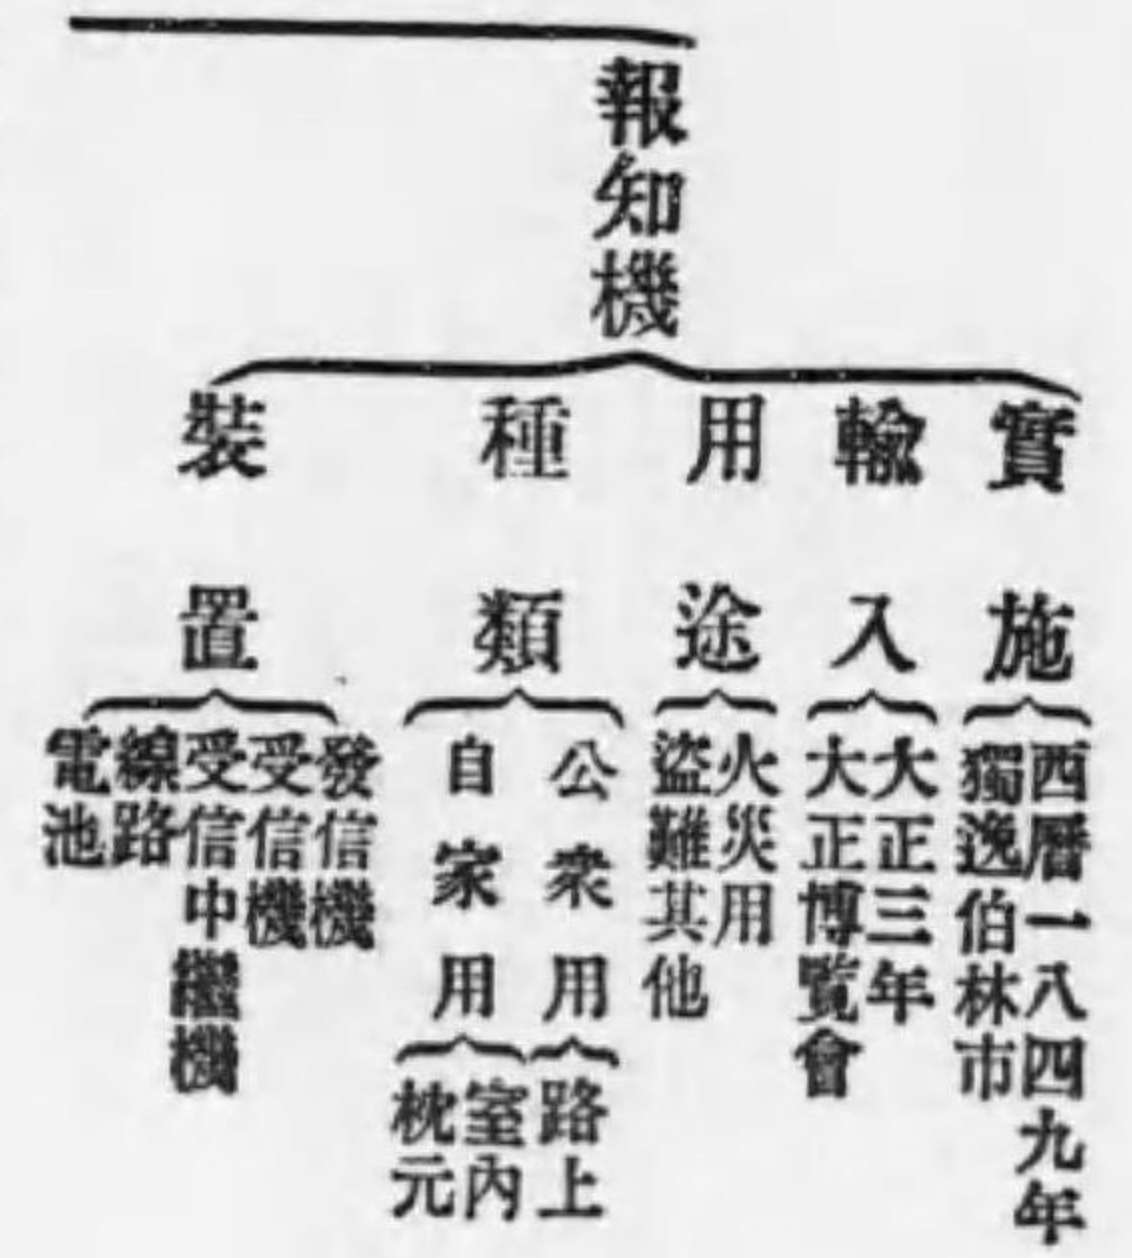 報知機
實施
西曆一八四九年
獨逸伯林市
輸入
大正三年
大正博覽會
用途
火災用
盜難其他
種類
公衆用
路上
自家用
室內
枕元
裝置
發信機
受信機
受信中繼機
線路
電池